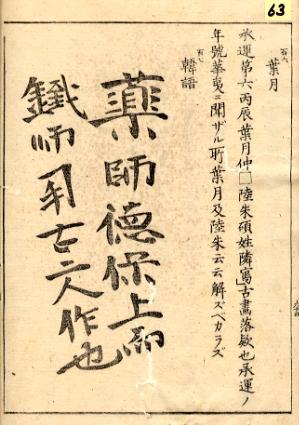 63
百六
葉月
承運第六丙辰葉月仲□陸朱碩姓隣寫古畵落欵也承運ノ
年號華夷ニ聞ザル所葉月及陸朱云云解ズベカラズ
百七
韓語
藥師德保上而
鐵師 古二人作也